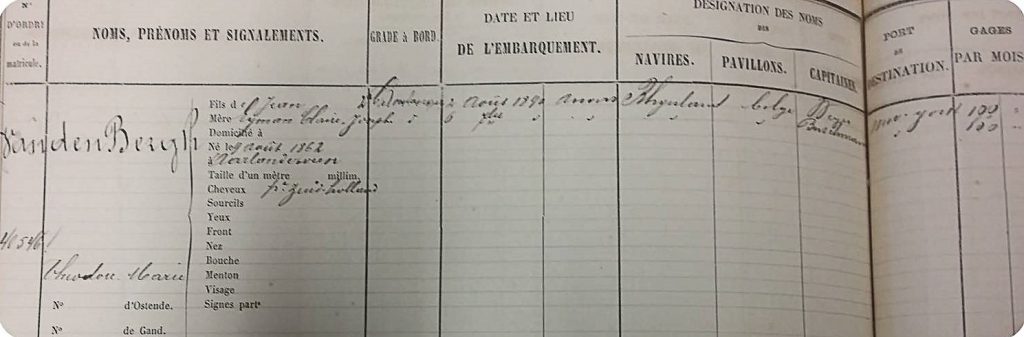 N°
D'ORDRE
ou de la
matricule.
NOMS, PRÉNOMS ET SIGNALEMENTS.
GRADE à BORD.
DATE ET LIEU
DE L'EMBARQUEMENT.
DÉSIGNATION DES NOMS
DES
NAVIRES.
PAVILLONS.
CAPITAINES.
PORT
DE
DESTINATION.
GAGES
PAR MOIS
Van den Bergh
Fils de Jean
Mère Claire Joseph
Domicilié à
Né le 9 août 1862
à
Taille d'un mètre millim.
Cheveux pce Zuid-holland
Sourcils
Yeux
Front
Nez
Bouche
Menton
Visage
Signes parts
2 août 1890 anvers Rhynland belge new-york 190
6 " " " " " 190 "
Theodore Marie
N° d'Ostende.
N° de Gand.